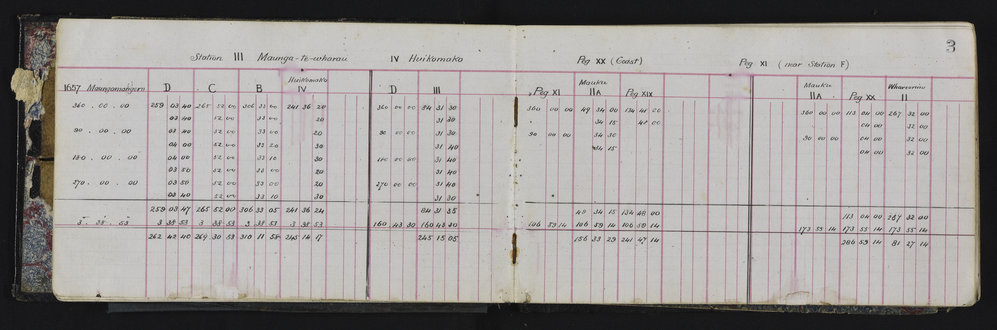 3
Station III Maunga-te-wharau IV Huikomako Peg XX (Coast) Peg XI (near Station F)
Huikomako Mauku Mauku Whareorino
1657 Maungamangero D C B IV D III Peg XI IIA Peg XIX IIA Peg XX II
360 . 00 . 00 259 03 40 265 52 00 306 33 00 241 36 20 360 00 00 84 31 30 360 00 00 49 34 00 134 48 00 360 00 00 113 04 00 267 32 00
03 40 52 00 33 00 20 31 30 34 15 48 00 04 00 32 00
90 . 00 . 00 03 40 52 00 33 00 20 90 00 00 31 30 90 00 00 34 30 90 00 00 04 00 32 00
04 00 52 00 33 20 30 31 40 34 15 04 00 32 00
180 . 00 . 00 04 00 52 00 33 10 30 180 00 00 31 40
03 50 52 00 33 00 20 31 40
270 . 00 . 00 03 50 52 00 33 00 20 270 00 00 31 40
03 40 52 00 33 10 30 31 30
259 03 47 265 52 00 306 33 05 241 36 24 84 31 35 49 34 15 134 48 00 113 04 00 267 32 00
3 . 38 . 53 3 38 53 3 38 53 3 38 53 3 38 53 160 43 30 160 43 30 106 59 14 106 59 14 106 59 14 173 55 14 173 55 14 173 55 14
262 42 40 269 30 53 310 11 58 245 15 17 245 15 05 156 33 29 241 47 14 286 59 14 81 27 14